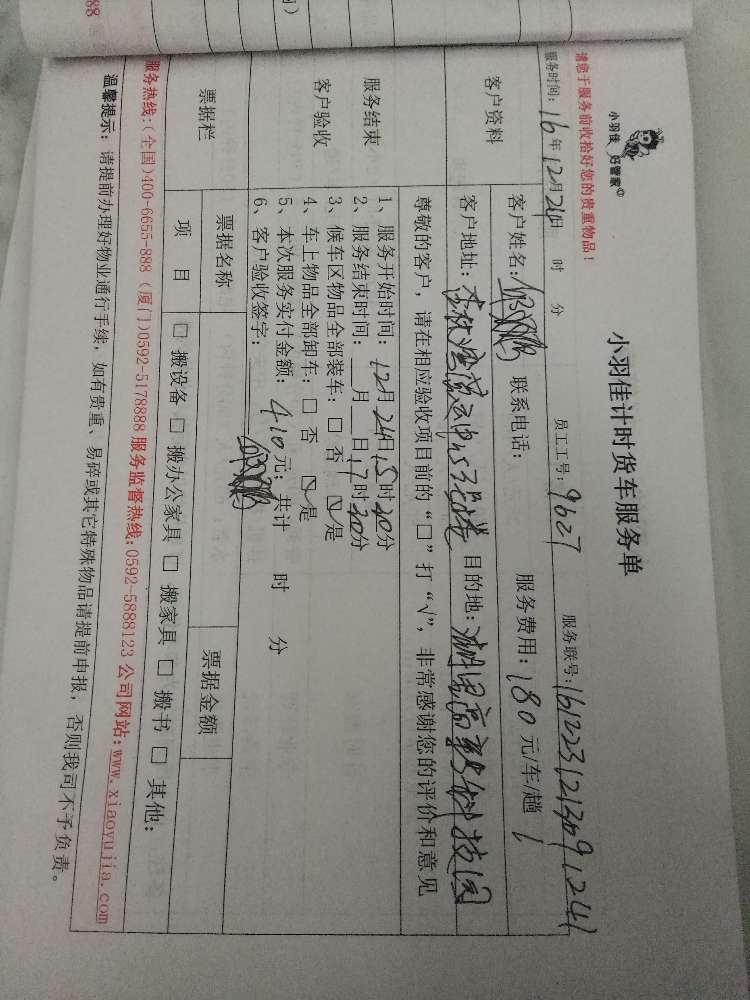 小羽佳 好管家
小羽佳计时货车服务单
请您于服务前收拾好您的贵重物品！
服务时间：16年12月24日 时 分 员工工号：9627 服务联号：1612231213091241
客户资料
客户姓名： 联系电话： 服务费用：180元/车/趟
客户地址： 目的地：高新科技园
尊敬的客户，请在相应验收项目前的“□”打“√”，非常感谢您的评价和意见
服务结束
客户验收
1、服务开始时间：12月24日15时20分
2、服务结束时间：__月__日17时20分
3、候车区物品全部装车：□ 否 ☑ 是
4、车上物品全部卸车：□ 否 ☑ 是
5、本次服务实付金额：410元；共计 时 分
6、客户验收签字：
票据栏 票据名称 票据金额
项 目 □ 搬设备 □ 搬办公家具 □ 搬家具 □ 搬书 □ 其他：
服务热线：(全国)400-6655-888 (厦门)0592-5178888 服务监督热线:0592-5888123 公司网站:www.xiaoyujia.com
温馨提示：请提前办理好物业通行手续，如有贵重、易碎或其它特殊物品请提前申报，否则我司不予负责。